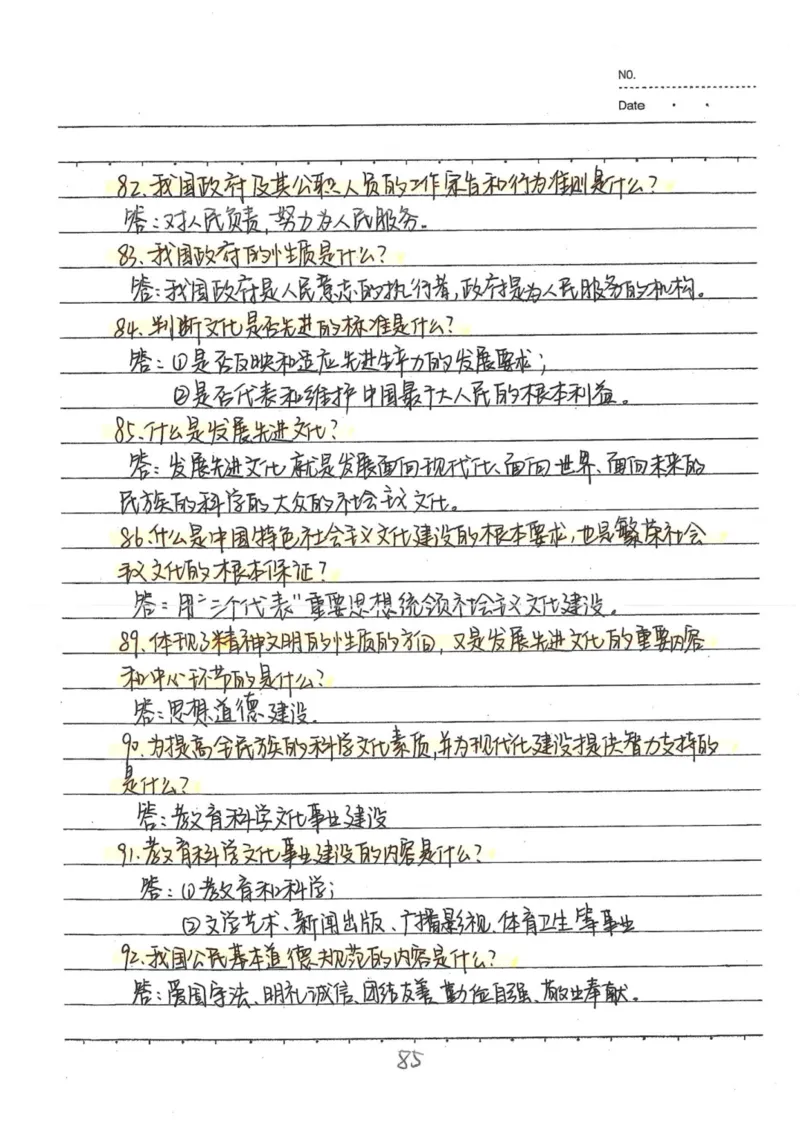 NO.
Date
82.我国政府及其公职人员的工作宗旨和行为准则是什么?
答:对人民负责,努力为人民服务。
83.我国政府的性质是什么?
答:我国政府是人民意志的执行者,政府是为人民服务的机构。
84.判断文化是否先进的标准是什么?
答:①是否反映和适应先进生产力的发展要求;
②是否代表和维护中国最广大人民的根本利益。
85.什么是发展先进文化?
答:发展先进文化就是发展面向现代化、面向世界、面向未来的
民族的科学的大众的社会主义文化。
86.什么是中国特色社会主义文化建设的根本要求,也是繁荣社会
主义文化的根本保证?
答:用“三个代表”重要思想统领社会主义文化建设。
89.体现了精神文明的性质的方向,又是发展先进文化的重要内容
和中心环节的是什么?
答:思想道德建设.
90.为提高全民族的科学文化素质,并为现代化建设提供智力支持的
是什么?
答:教育科学文化事业建设
91.教育科学文化事业建设的内容是什么?
答:①教育和科学;
②文学艺术、新闻出版、广播影视、体育卫生等事业
92.我国公民基本道德规范的内容是什么?
答:爱国守法、明礼诚信、团结友善、勤俭自强、敬业奉献。
85